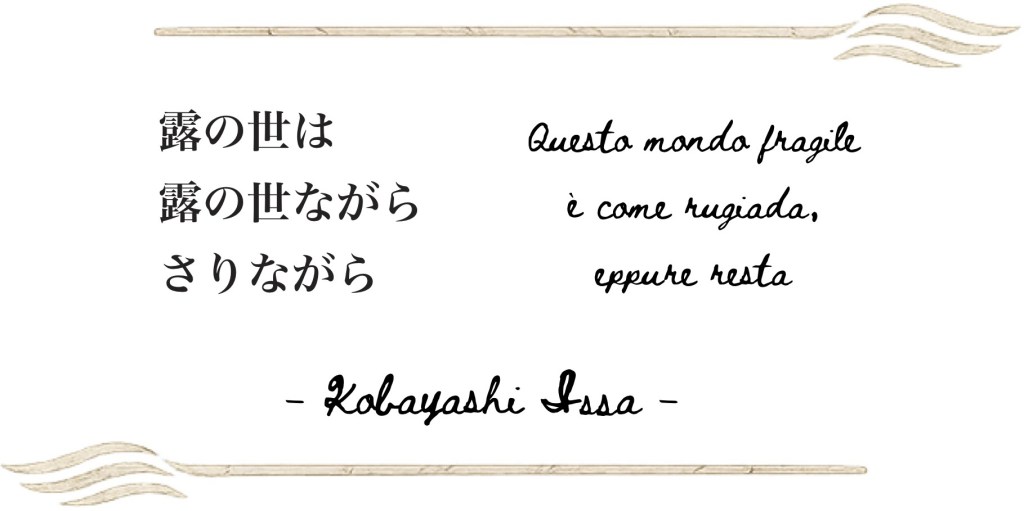 露の世は
露の世ながら
さりながら
Questo mondo fragile
è come rugiada,
eppure resta
- Kobayashi Issa -